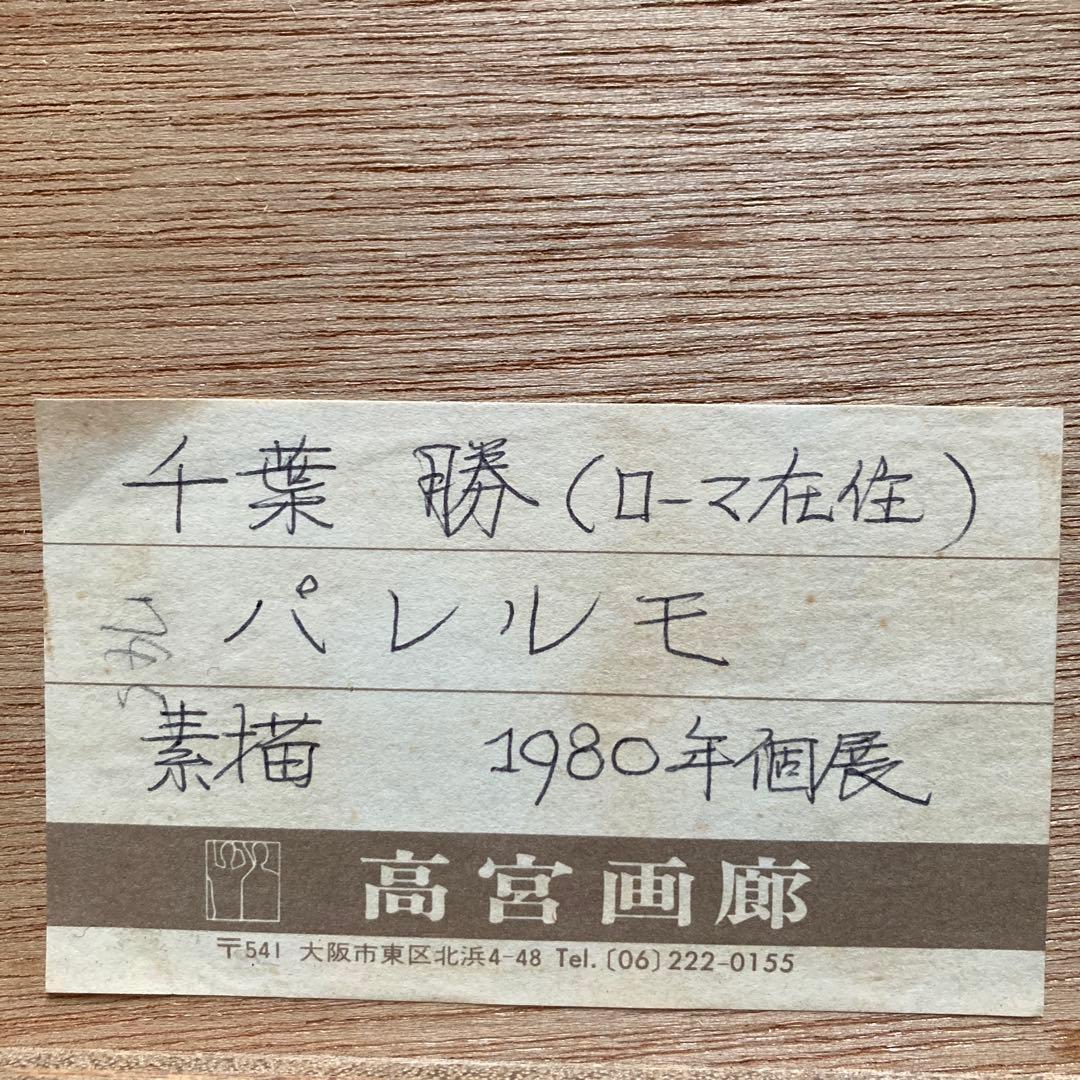 千葉 勝(ローマ在住)
パレルモ
素描 1980年個展
高宮画廊
〒541 大阪市東区北浜4-48 Tel.〔06〕222-0155